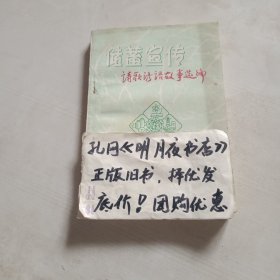 储蓄宣传
诗歌谚语故事选编
孔网《明月夜书店》
正版旧书,择优发
底价!团购优惠